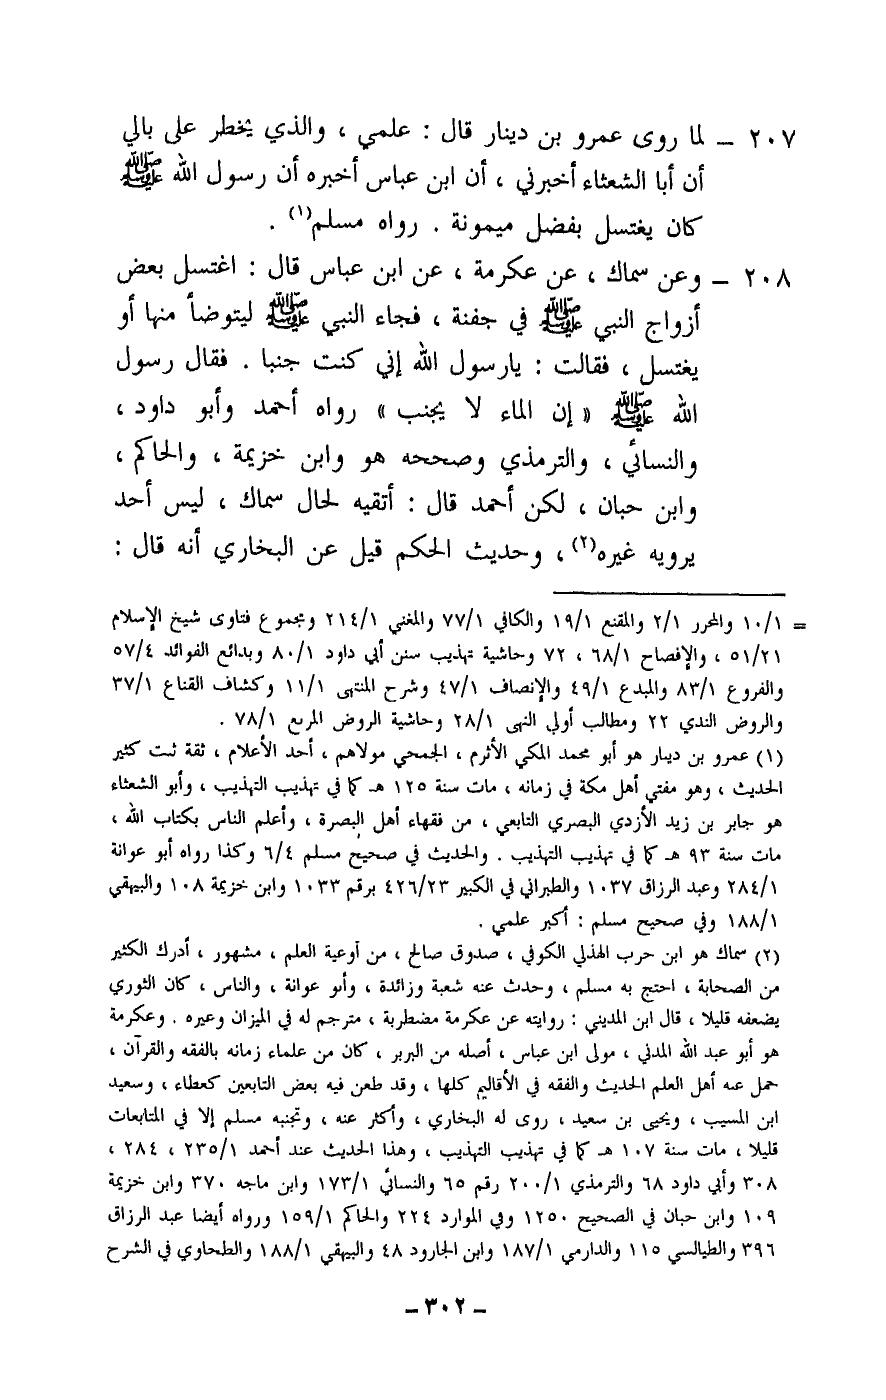 ٢٠٧ ــ لما روى عمرو بن دينار قال : علمي ، والذي يخطر على بالي
أن أبا الشعثاء أخبرني ، أن ابن عباس أخبره أن رسول الله ﷺ
كان يغتسل بفضل ميمونة . رواه مسلم(١) .
٢٠٨ ــ وعن سماك ، عن عكرمة ، عن ابن عباس قال : اغتسل بعض
أزواج النبي ﷺ في جفنة ، فجاء النبي ﷺ ليتوضأ منها أو
يغتسل ، فقالت : يارسول الله إني كنت جنبا . فقال رسول
الله ﷺ « إن الماء لا يجنب » رواه أحمد وأبو داود ،
والنسائي ، والترمذي وصححه هو وابن خزيمة ، والحاكم ،
وابن حبان ، لكن أحمد قال : أتقيه لحال سماك ، ليس أحد
يرويه غيره(٢) ، وحديث الحكم قيل عن البخاري أنه قال :
= ١٠/١ والمحرر ٢/١ والمقنع ١٩/١ والكافي ٧٧/١ والمغني ٢١٤/١ ومجموع فتاوى شيخ الإسلام
٥١/٢١ ، والإفصاح ٦٨/١ ، ٧٢ وحاشية تهذيب سنن أبي داود ٨٠/١ وبدائع الفوائد ٥٧/٤
والفروع ٨٣/١ والمبدع ٤٩/١ والإنصاف ٤٧/١ وشرح المنتهى ١١/١ وكشاف القناع ٣٧/١
والروض الندي ٢٢ ومطالب أولى النهى ٢٨/١ وحاشية الروض المربع ٧٨/١ .
(١) عمرو بن دينار هو أبو محمد المكي الأثرم ، الجمحي مولاهم ، أحد الأعلام ، ثقة ثبت كثير
الحديث ، وهو مفتي أهل مكة في زمانه ، مات سنة ١٢٥ هـ كما في تهذيب التهذيب ، وأبو الشعثاء
هو جابر بن زيد الأزدي البصري التابعي ، من فقهاء أهل البصرة ، وأعلم الناس بكتاب الله ،
مات سنة ٩٣ هـ كما في تهذيب التهذيب . والحديث في صحيح مسلم ٦/٤ وكذا رواه أبو عوانة
٢٨٤/١ وعبد الرزاق ١٠٣٧ والطبراني في الكبير ٤٢٦/٢٣ برقم ١٠٣٣ وابن خزيمة ١٠٨ والبيهقي
١٨٨/١ وفي صحيح مسلم : أكبر علمي .
(٢) سماك هو ابن حرب الهذلي الكوفي ، صدوق صالح ، من أوعية العلم ، مشهور ، أدرك الكثير
من الصحابة ، احتج به مسلم ، وحدث عنه شعبة وزائدة ، وأبو عوانة ، والناس ، كان الثوري
يضعفه قليلا ، قال ابن المديني : روايته عن عكرمة مضطربة ، مترجم له في الميزان وغيره . وعكرمة
هو أبو عبد الله المدني ، مولى ابن عباس ، أصله من البربر ، كان من علماء زمانه بالفقه والقرآن ،
حمل عنه أهل العلم الحديث والفقه في الأقاليم كلها ، وقد طعن فيه بعض التابعين كعطاء ، وسعيد
ابن المسيب ، ويحيى بن سعيد ، روى له البخاري ، وأكثر عنه ، وتجنبه مسلم إلا في المتابعات
قليلا ، مات سنة ١٠٧ هـ كما في تهذيب التهذيب ، وهذا الحديث عند أحمد ٢٣٥/١ ، ٢٨٤ ،
٣٠٨ وأبي داود ٦٨ والترمذي ٢٠٠/١ رقم ٦٥ والنسائي ١٧٣/١ وابن ماجه ٣٧٠ وابن خزيمة
١٠٩ وابن حبان في الصحيح ١٢٥٠ وفي الموارد ٢٢٤ والحاكم ١٥٩/١ ورواه أيضا عبد الرزاق
٣٩٦ والطيالسي ١١٥ والدارمي ١٨٧/١ وابن الجارود ٤٨ والبيهقي ١٨٨/١ والطحاوي في الشرح
ــ ٣٠٢ ــ